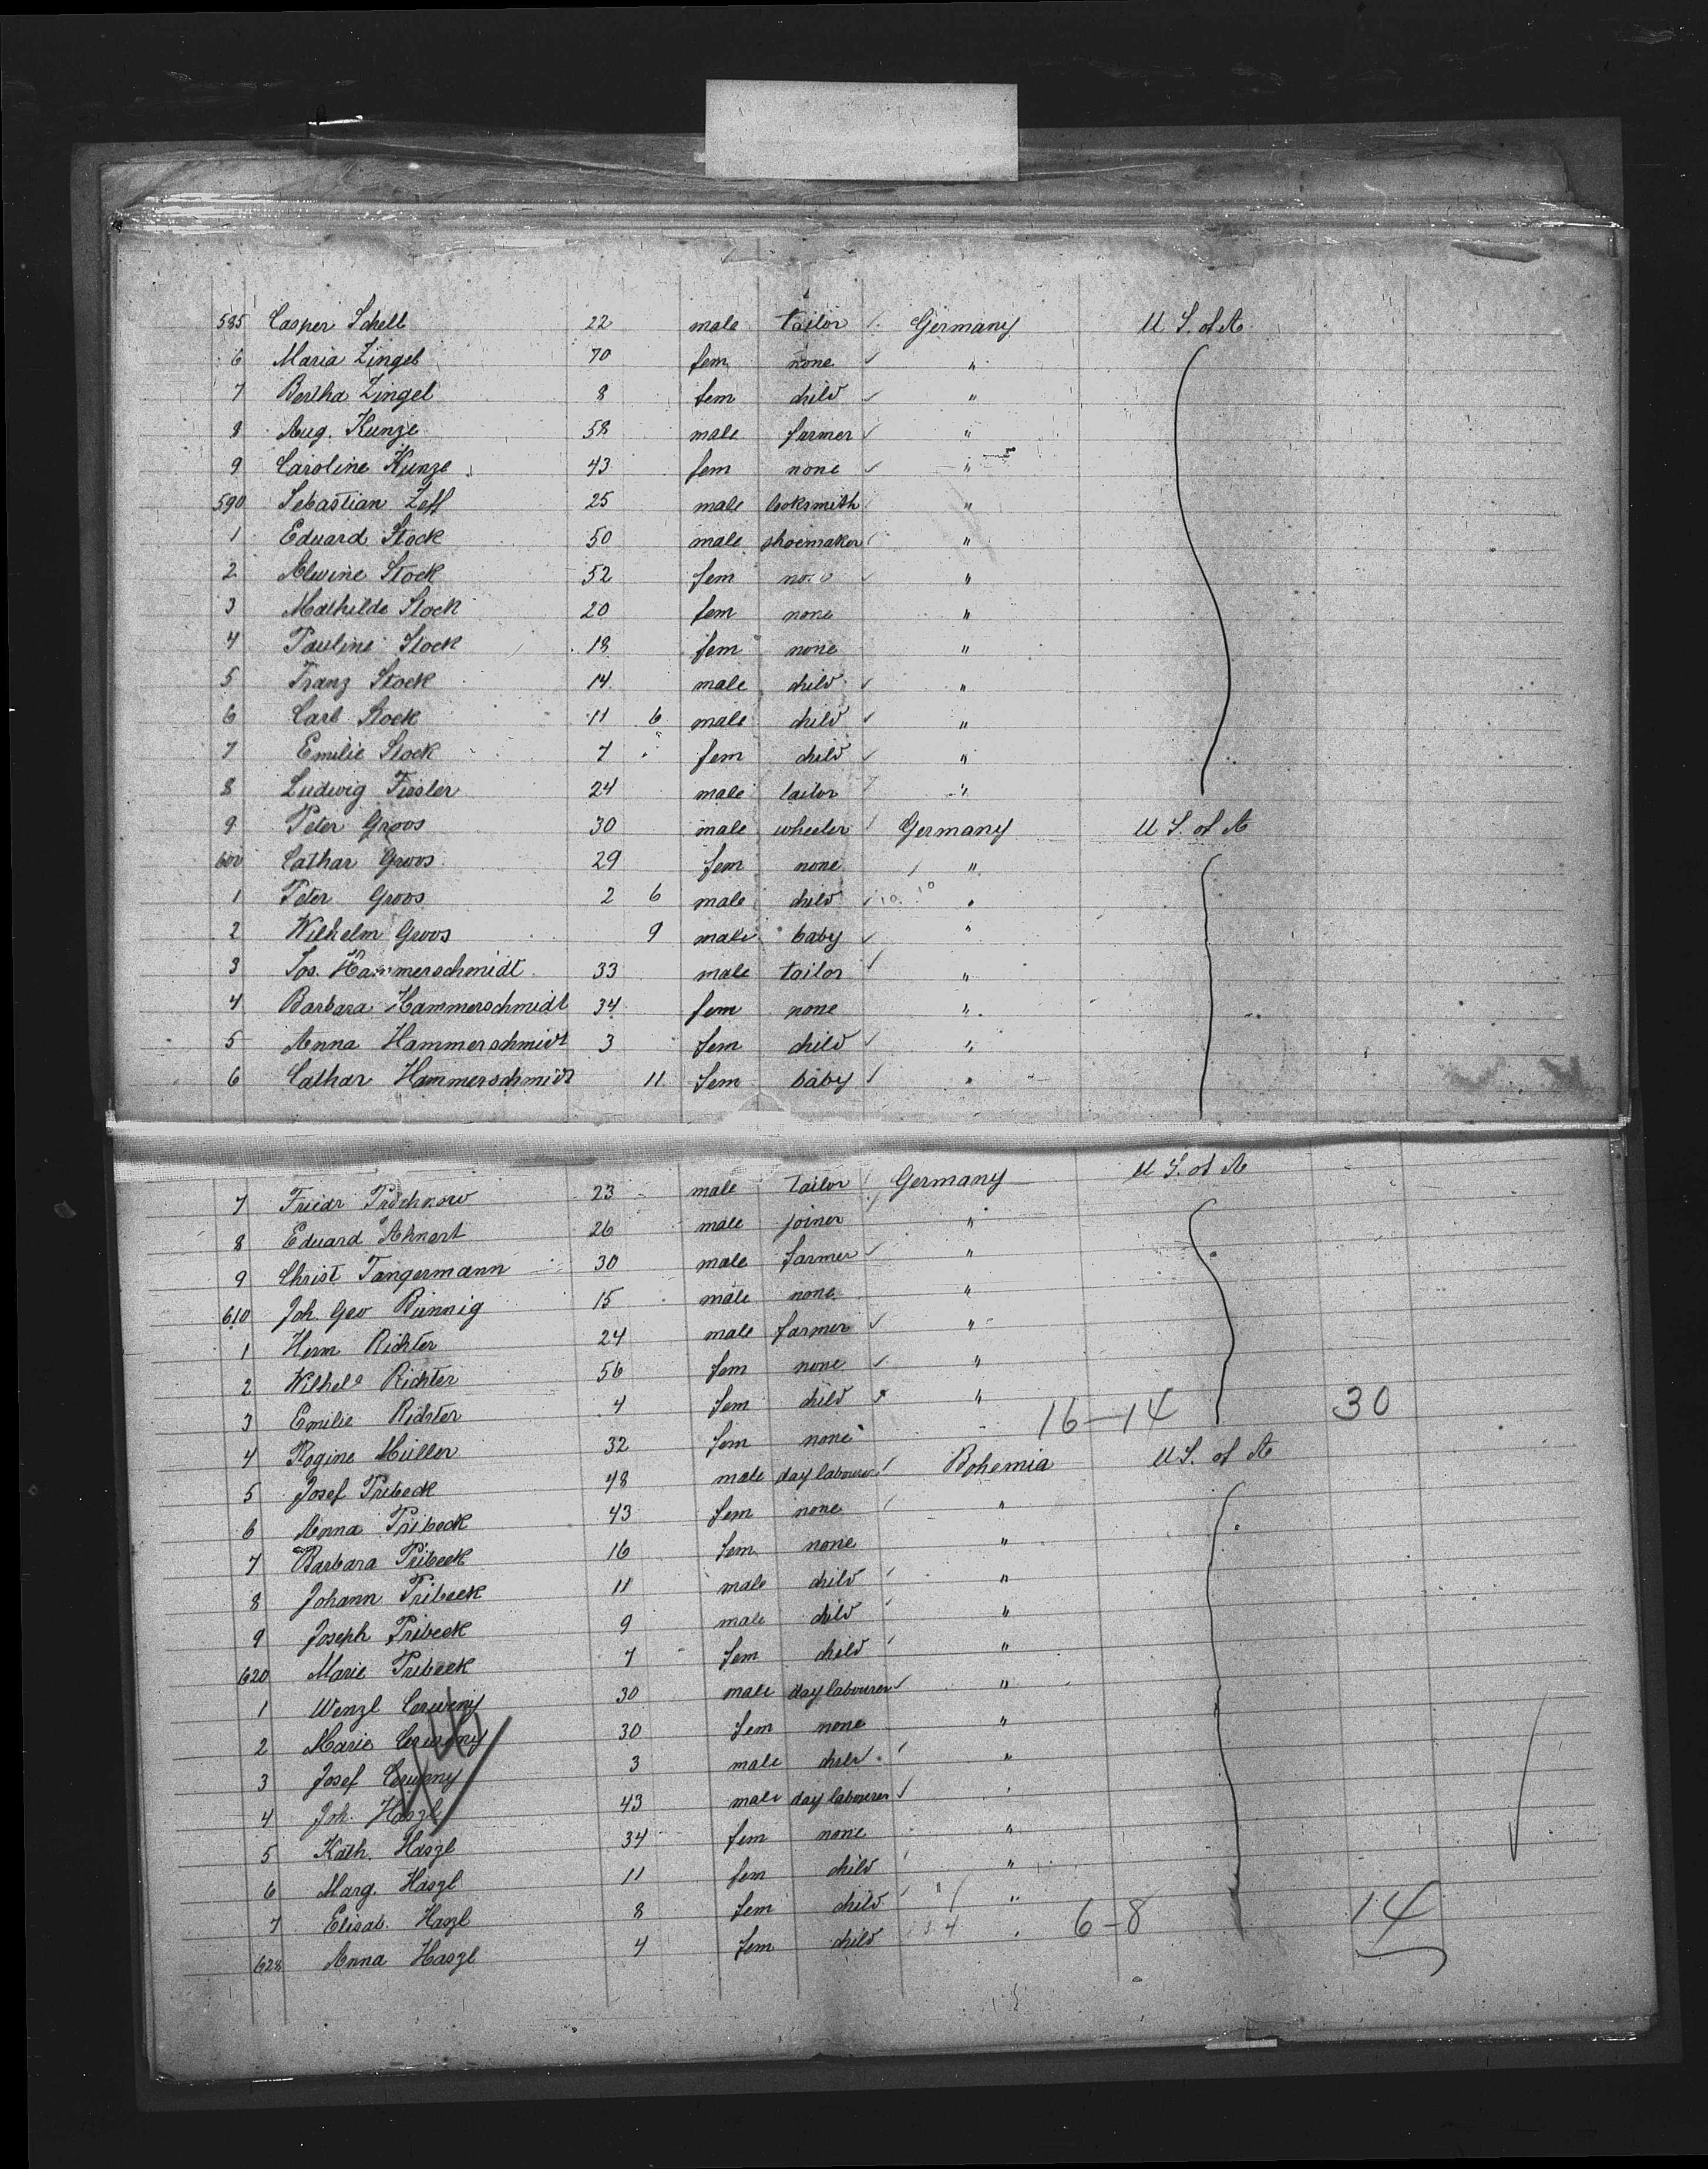 585 Casper Schell 22 male tailor Germany U S. of A.
6 Maria Zingel 70 fem none "
7 Bertha Zingel 8 fem child "
8 Aug. Kunze 58 male farmer "
9 Caroline Kunze 43 fem none "
590 Sebastian Zeff 25 male loksmith "
1 Eduard Stock 50 male shoemaker "
2 Alwine Stock 52 fem none "
3 Mathilde Stock 20 fem none "
4 Pauline Stock 18 fem none "
5 Franz Stock 14 male child "
6 Carl Stock 11 6 male child "
7 Emilie Stock 7 fem child "
8 Ludwig Fissler 24 male tailor "
9 Peter Groos 30 male wheeler Germany U S. of A
600 Cathar Groos 29 fem none "
1 Peter Groos 2 6 male child "
2 Wilhelm Groos 9 male baby "
3 Jos. Hammerschmidt 33 male tailor "
4 Barbara Hammerschmidt 34 fem none "
5 Anna Hammerschmidt 3 fem child "
6 Cathar Hammerschmidt 11 fem baby "
7 Friedr Prochnow 23 male tailor Germany U S. of A
8 Eduard Ahnert 26 male joiner "
9 Christ Tangermann 30 male farmer "
610 Joh. Geo Bünnig 15 male none "
1 Herm Richter 24 male farmer "
2 Wilhele Richter 56 fem none "
3 Emilie Richter 4 fem child " 16-14 30
4 Rogine Müller 32 fem none
5 Josef Pribeck 48 male day labourer Bohemia U S. of A
6 Anna Pribeck 43 fem none "
7 Barbara Pribeck 16 fem none "
8 Johann Pribeck 11 male child "
9 Joseph Pribeck 9 male child "
620 Marie Pribeck 7 fem child "
1 Wenzl Cerweny 30 male day labourer "
2 Marie Cerweny 30 fem none "
3 Josef Cerweny 3 male child "
4 Joh. Haszl 43 male day labourer "
5 Kath. Haszl 34 fem none "
6 Marg. Haszl 11 fem child "
7 Elisab. Haszl 8 fem child "
628 Anna Haszl 4 fem child " 6-8 14